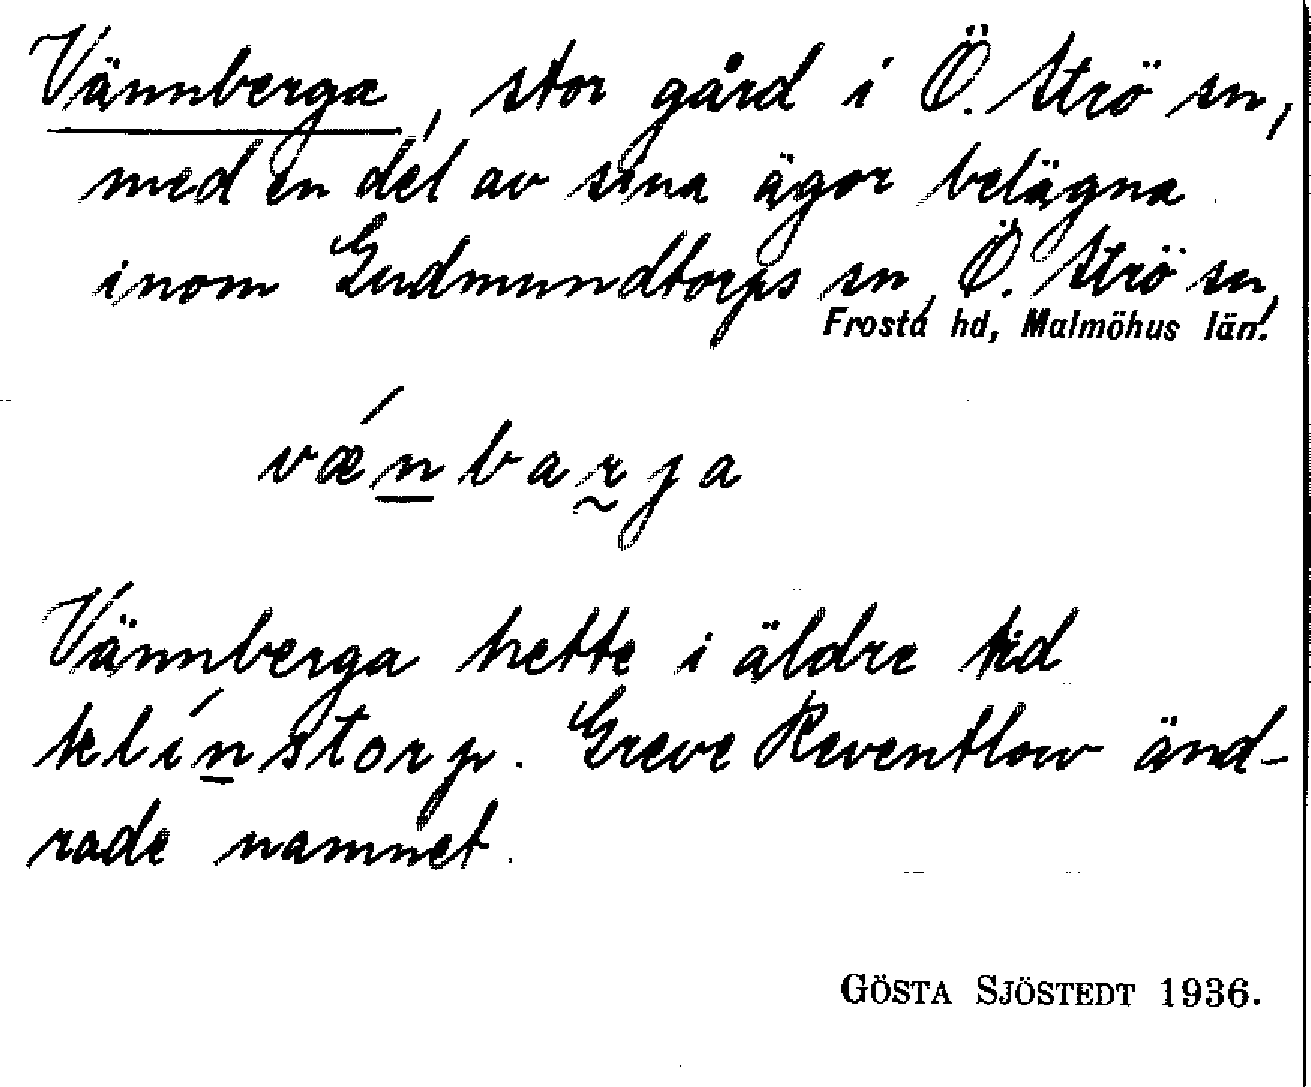 Vännberga, stor gård i Ö. Strö sn,
med en del av sina ägor belägna
inom Gudmundtorps sn, Ö. Strö sn,
Frosta hd, Malmöhus län.
væ´n̲barja
Vännberga hette i äldre tid
klín̲storp. Greve Reventlow änd-
rade namnet.
GÖSTA SJÖSTEDT 1936.